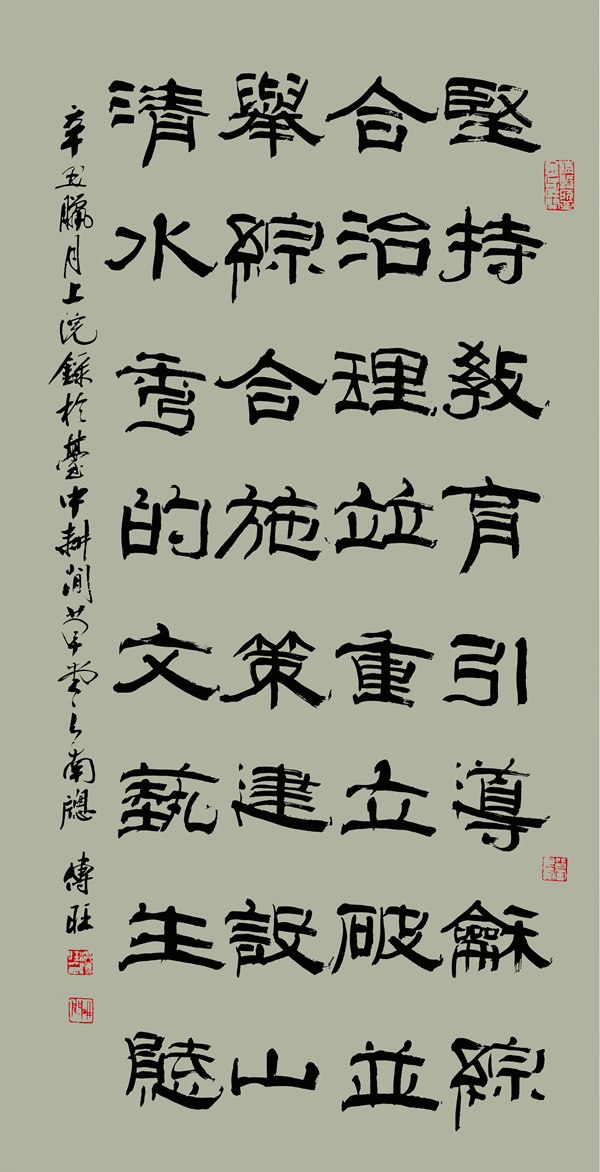 堅持教育引導龢綜
合治理竝重立破並
舉綜合施策建設山
清水秀的文藝生態
辛丑臘月上浣錄於臺中耕閒草堂之南牕 傳旺